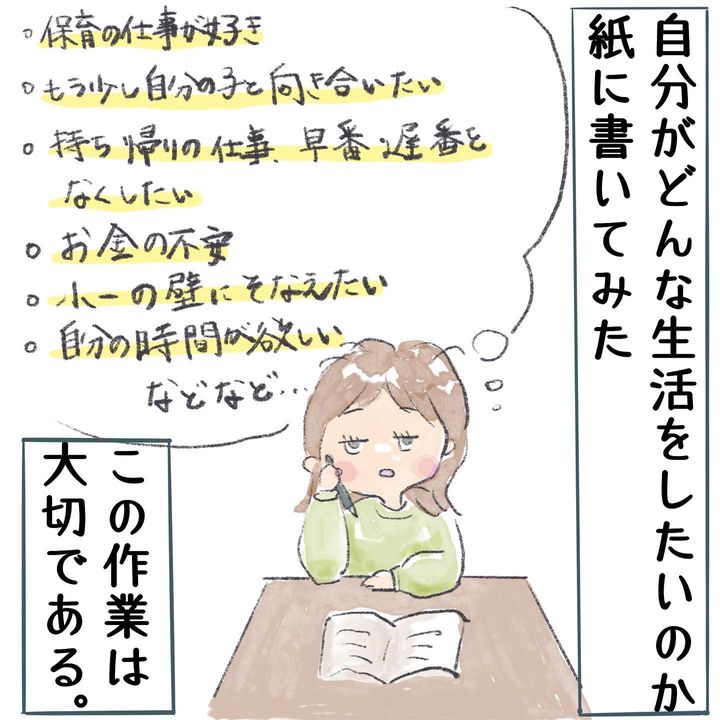 自分がどんな生活をしたいのか
紙に書いてみた
。保育の仕事が好き
。もう少し自分の子と向き合いたい
。持ち帰りの仕事、早番・遅番を
なくしたい
。お金の不安
。小一の壁にそなえたい
。自分の時間が欲しい
などなど…
この作業は
大切である。